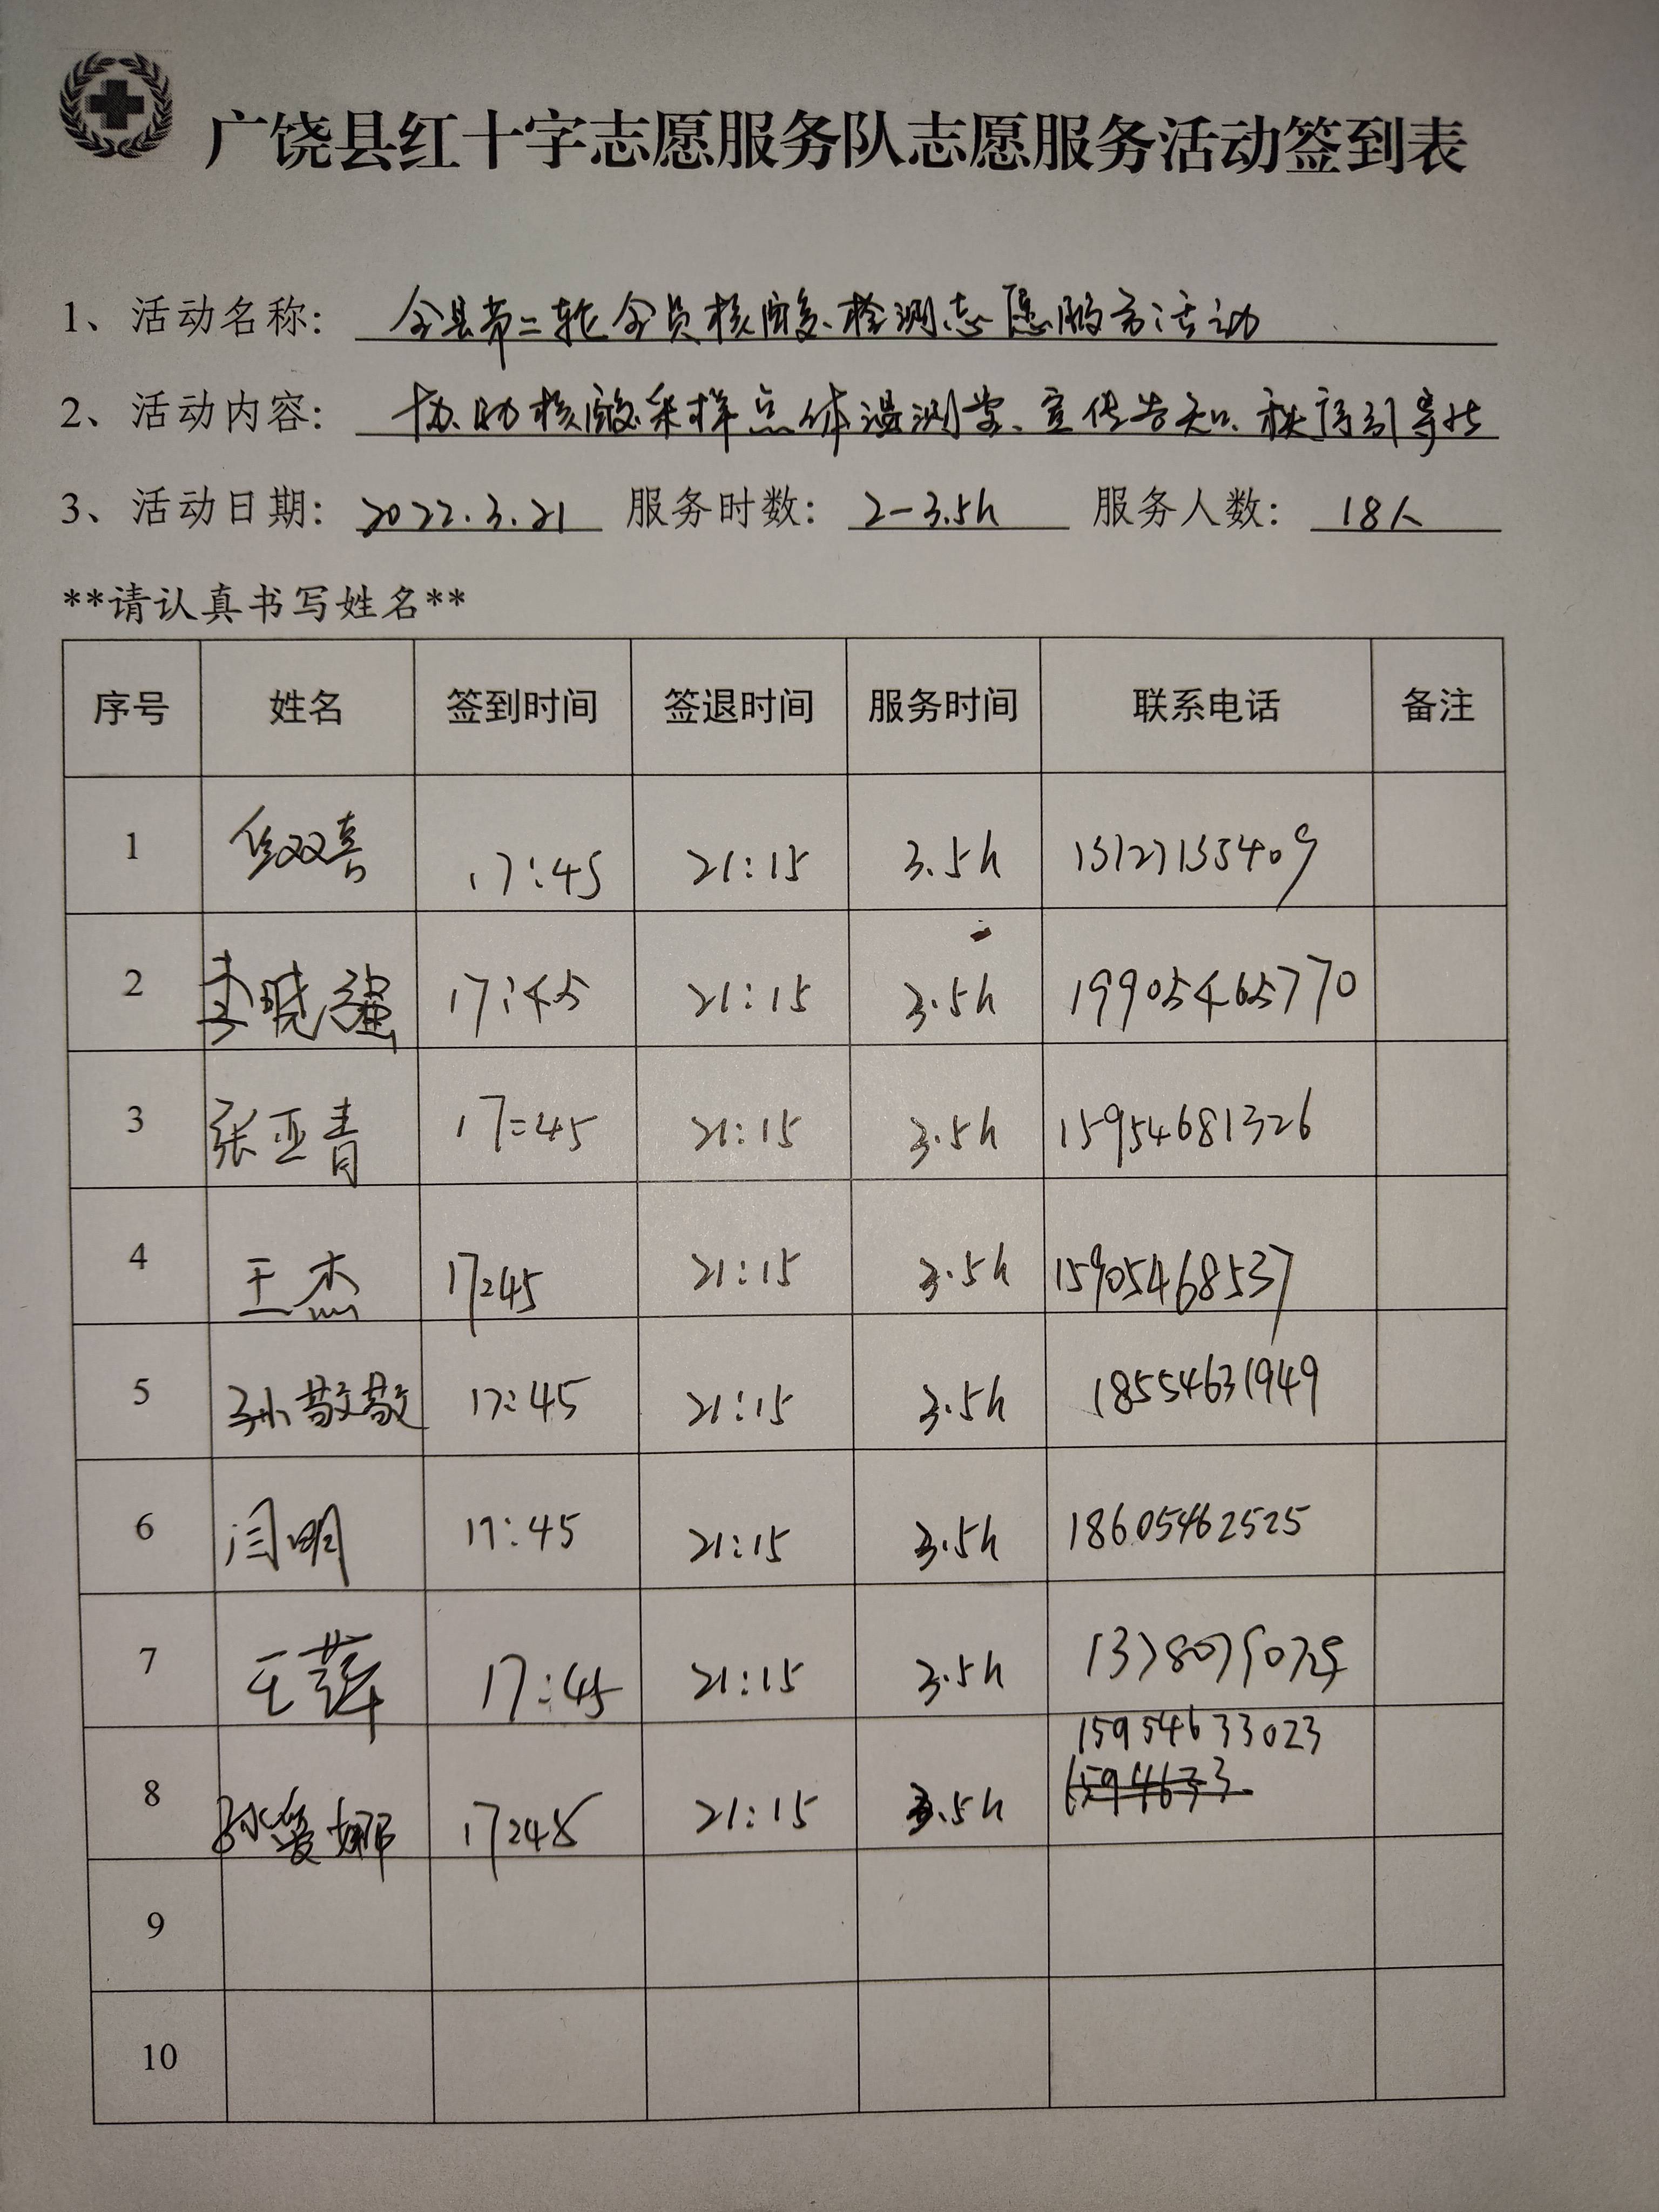 广饶县红十字志愿服务队志愿服务活动签到表
1、活动名称：全县第二轮全员核酸检测志愿服务活动
2、活动内容：协助核酸采样点体温测量、宣传告知、秩序引导等
3、活动日期：2022.3.21 服务时数：2-3.5h 服务人数：18人
**请认真书写姓名**
序号 姓名 签到时间 签退时间 服务时间 联系电话 备注
1 双喜 17:45 21:15 3.5h 13127135409
2 李晓强 17:45 21:15 3.5h 19905465770
3 张亚青 17:45 21:15 3.5h 15954681326
4 王杰 17:45 21:15 3.5h 15905468537
5 孙敬敬 17:45 21:15 3.5h 18554631949
6 闫明 17:45 21:15 3.5h 18605462525
7 王萍 17:45 21:15 3.5h
15954633023
8 孙爱娜 17:45 21:15 3.5h
9
10